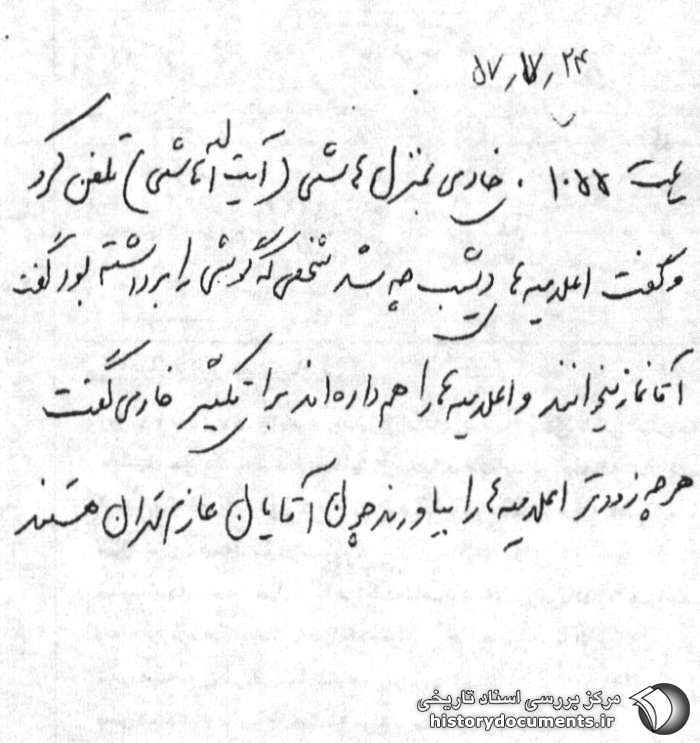 ۵۷٫۷٫۲۴
ساعت ۱۰۵۵ . خادمی بمنزل هاشمی (آیت اله هاشمی) تلفن کرد
و گفت اعلامیه ها دیشب چه شد شخصی که گوشی را برداشته بود گفت
آقا نماز میخوانند و اعلامیه ها را هم داده اند برای تکثیر خادمی گفت
هر چه زودتر اعلامیه ها را بیاورند چون آقایان عازم تهران هستند
مرکز بررسی اسناد تاریخی
historydocuments.ir